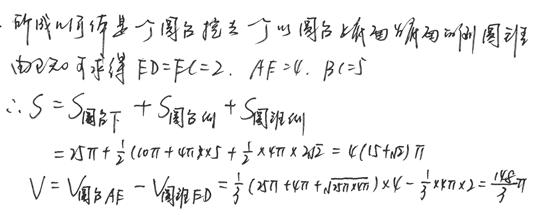 所成几何体是一个圆台挖去一个以圆台上底面为底面的倒圆锥
由已知可求得 ED=EC=2. AE=4. BC=5
∴ S = S圆台下 + S圆台侧 + S圆锥侧
= 25π + 1/2 (10π + 4π) × 5 + 1/2 × 4π × 2√2 = 4(15+√2)π
V = V圆台AE - V圆锥ED = 1/3 (25π + 4π + √25π×4π) × 4 - 1/3 × 4π × 2 = 148/3 π